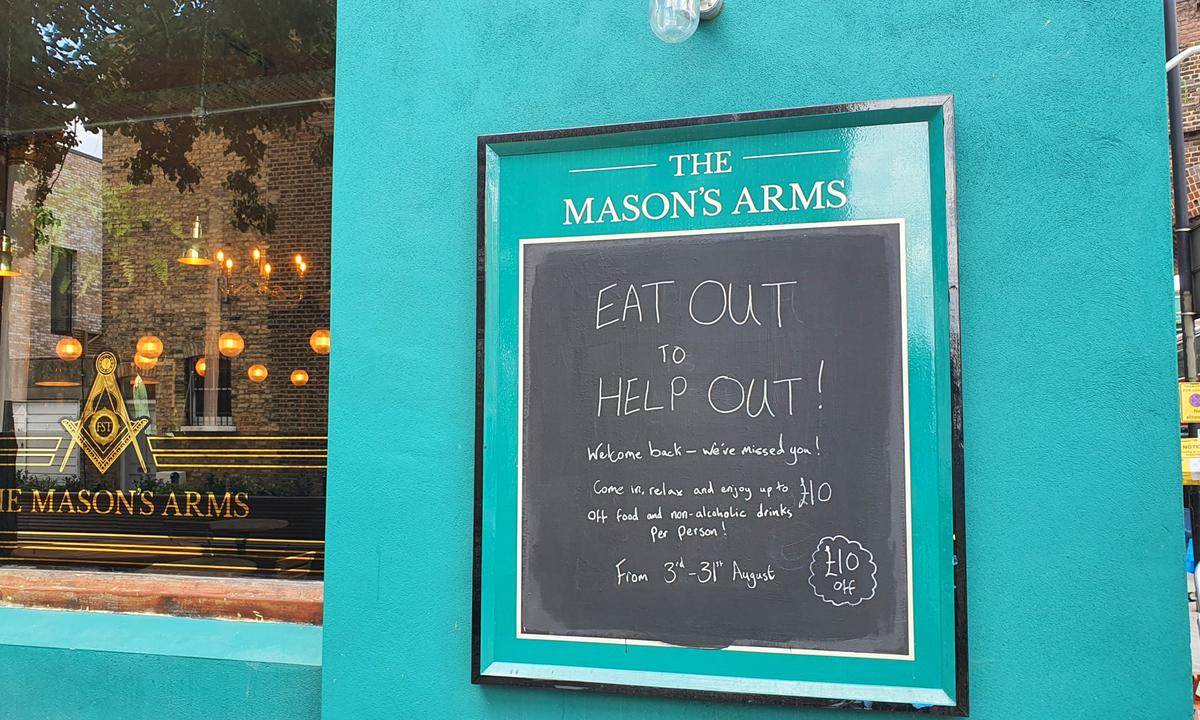 THE
MASON'S ARMS
EAT OUT
TO
HELP OUT!
Welcome back – we've missed you!
Come in, relax and enjoy up to £10
Off food and non-alcoholic drinks
Per Person!
From 3rd - 31st August
£10
Off
FST
THE MASON'S ARMS
NOTICE